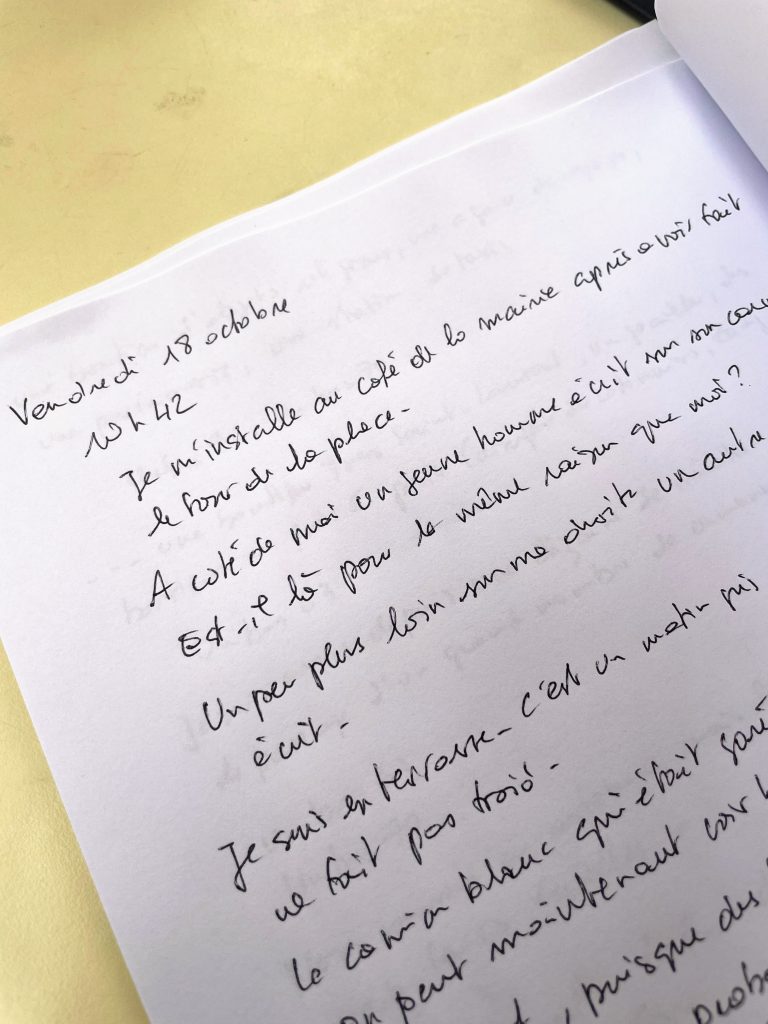 Vendredi 18 octobre
10h42
Je m'installe au café de la mairie après avoir fait
le tour de la place.
A coté de moi un jeune homme écrit sur son
Est-il là pour la même raison que moi ?
Un peu plus loin sur ma droite un autre
écrit.
Je suis en terrasse. C'est un matin gris
ne fait pas froid.
Le camion blanc qui était garé
on peut maintenant voir
, puisque des